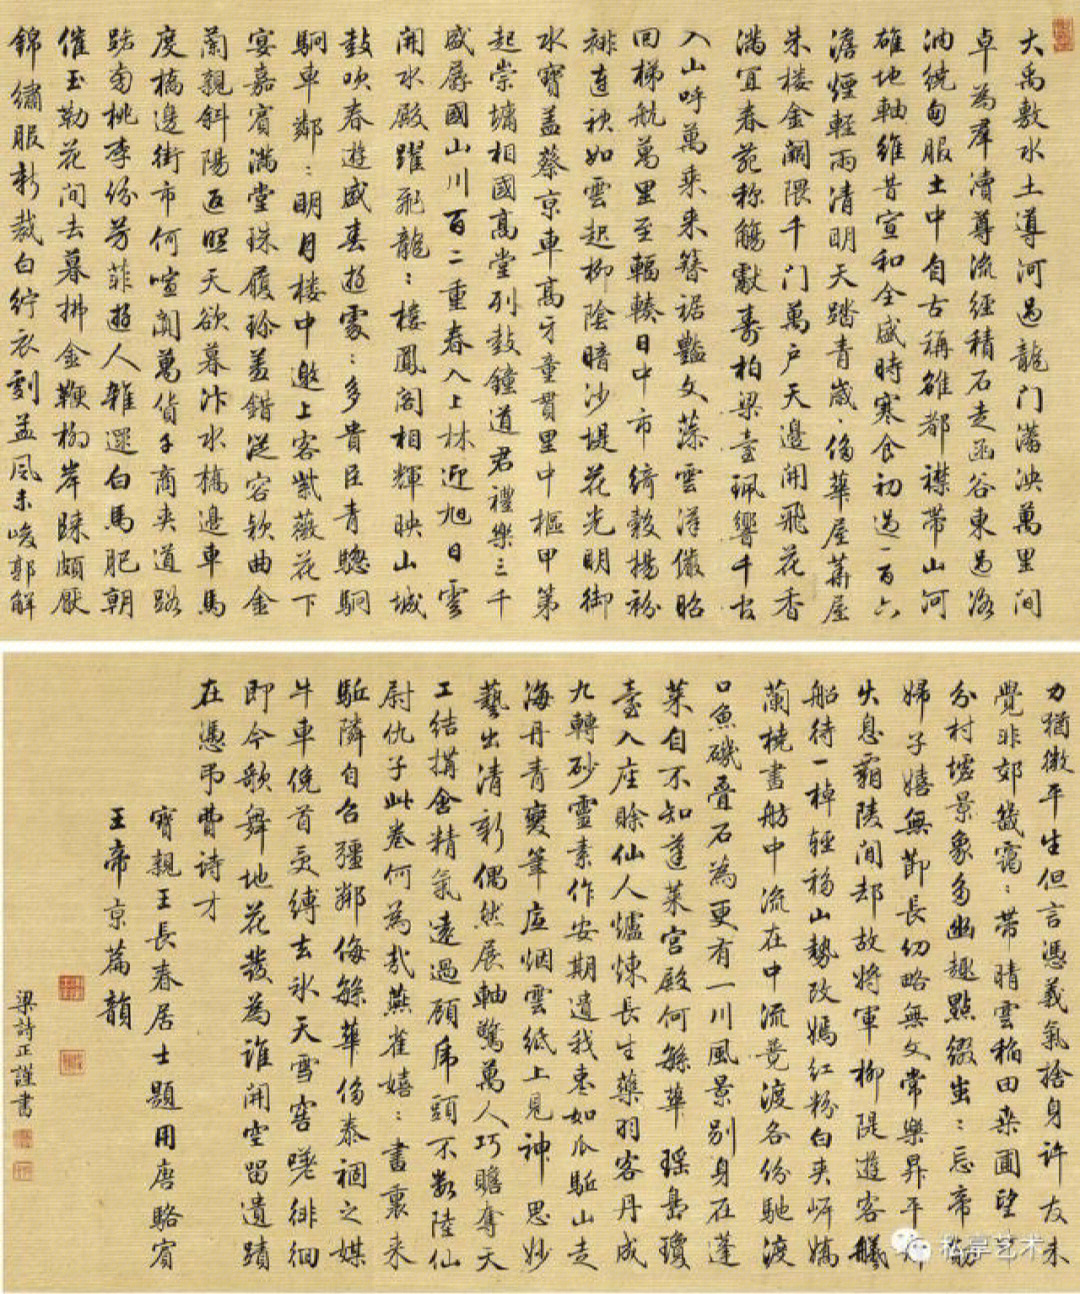 大禹敷水土導河過龍门瀁泱萬里间
卓為羣瀆尊流經積石走函谷東過洛
汭繞甸服土中自古稱雄都襟帶山河
碓地軸維昔宣和全盛時寒食初過一百六
澹煙輕雨清明天踏青歲:侈華屋華屋
朱楼金闕隈千门萬户天邊開飛花香
滿宜春苑称觴獻壽柏梁臺珮響千官
入山呼萬乘来簪裾豔文藻雲漢儼昭
回梯航萬里至輻輳日中市綺縠揚袗
裶連袂如雲起柳陰暗沙堤花光明御
水寶盖蔡京車高牙童貫里中樞甲第
起崇墉相國高堂列鼓鐘道君禮樂三千
盛孱國山川百二重春入上林迎旭日雲
開水殿躍飛龍:樓鳳阁相輝映山城
鼓吹春遊盛春遊處:多貴臣青驄駉
駉車鄰:明月楼中邀上客紫薇花下
宴嘉賓滿堂珠履珍羞錯從容欵曲金
蘭親斜陽返照天欲暮汴水橋邊車馬
度橋邊街市何喧闐萬貨千商夹道路
踏匋桃李份芳菲遊人雜遝白馬肥朝
催玉勒花间去暮拂金鞭柳岸歸頗厭
錦繡服新裁白紵衣劇孟風未峻郭解
力猶微平生但言憑義氣捨身许友未
覺非郊畿靄:帶晴雲稲田桒圃望
分村墟景象多幽趣點缀出:忘帝
婦子嬉無節長幼略無文常樂昇平
火息霸陵间却故將軍柳隄遊客艤
船待一棹輕移山勢改嫣红粉白夹岍嬌
蘭桡畫舫中流在中流竞渡各份馳渡
口魚磯叠石為更有一川風景别身在蓬
莱自不知蓬莱宮殿何緐華瑶島瓊
臺入座賒仙人爐煉長生藥羽客丹成
九轉砂靈素作安期遺我棗如瓜駈山走
海丹青變筆底烟雲纸上見神思妙
藝出清新偶然展軸驚萬人巧贍奪天
工結搆含精氣遠過顧虎頭不数陸仙
尉仇子此卷何為哉燕雀嬉:畫裏来
駈隣自召彊鄰侮緐華侈泰禍之媒
牛車俛首受縛去氷天雪窖嘆徘徊
即今歌舞地花發為誰開空留遺蹟
在憑弔費诗才
寶親王長春居士題用唐駱賓
王帝京篇韻
梁詩正謹書
私享艺术